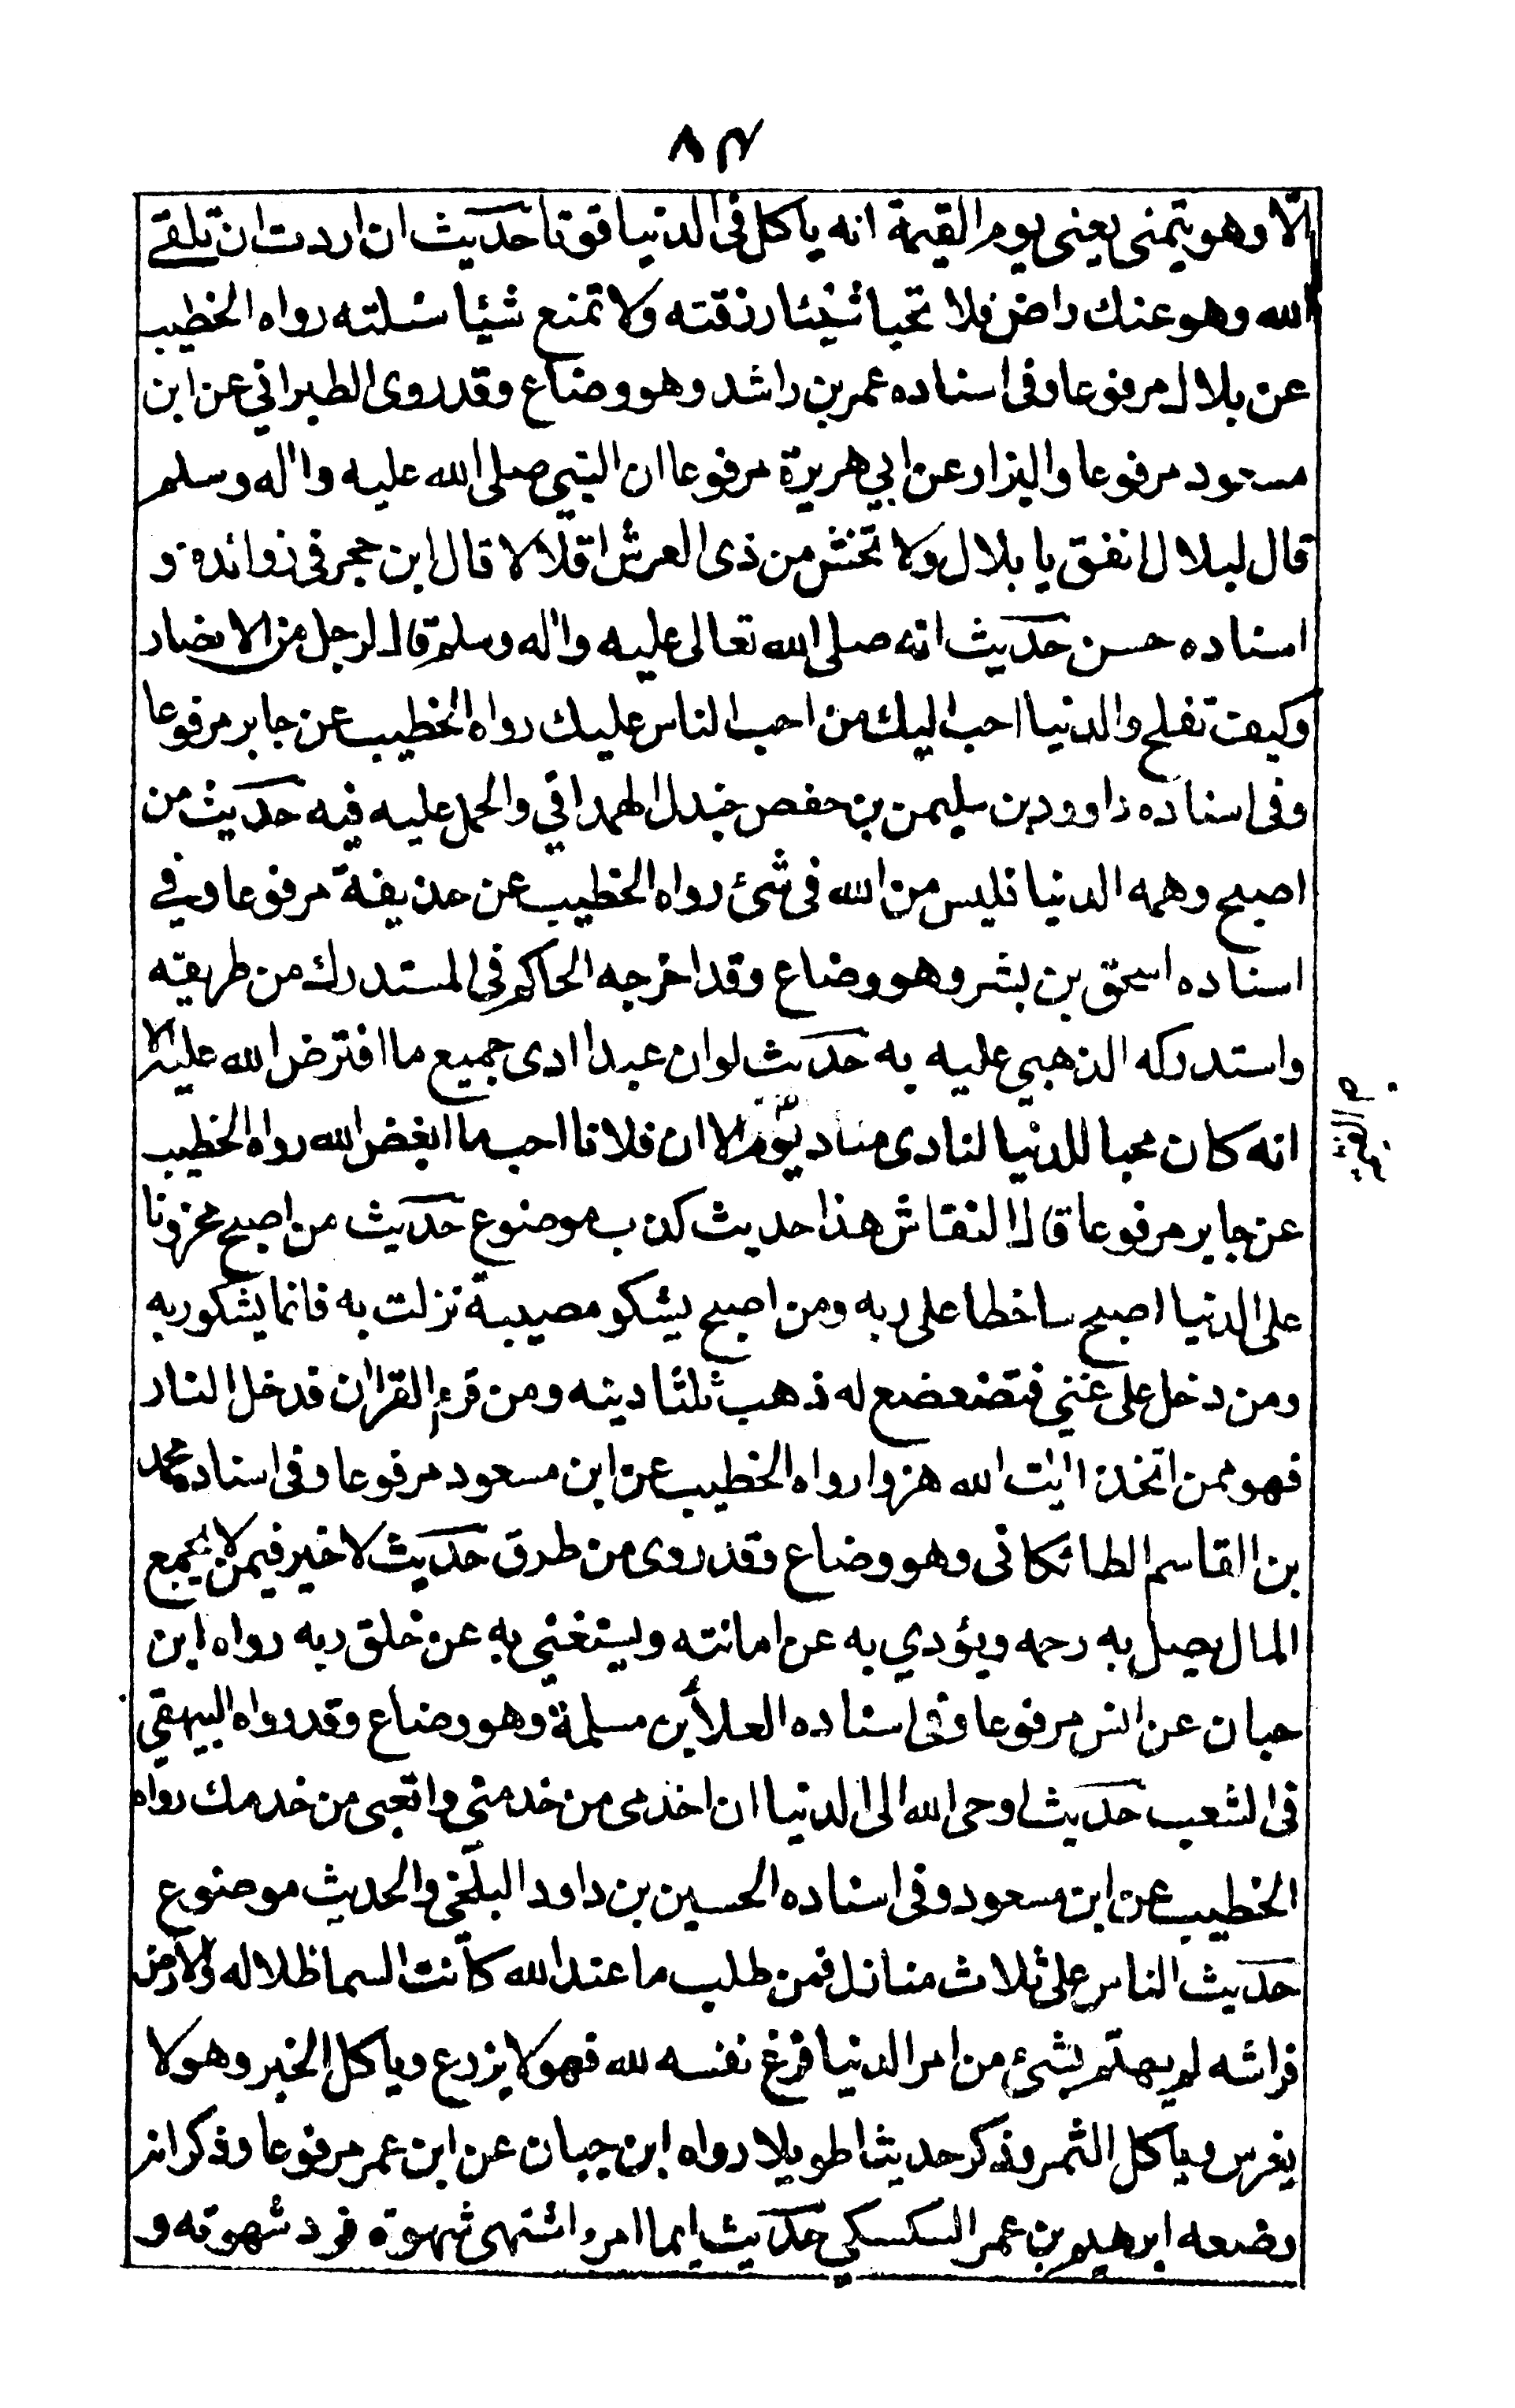 ٨٣
الا وهو يتمنى يعنى يوم القيمة انه ياكل فى الدنيا قوتا حديث ان اردت ان تلقے
الله وهو عنك راض فلا تخبا شيئا رزقته ولا تمنع شيئا سئلته رواه الخطيب
عن بلال مرفوعا وفى اسناده عمر بن راشد وهو وضاع وقد روى الطبراني عن ابن
مسعود مرفوعا والبزار عن ابي هريرة مرفوعا ان النبي صلى الله عليه واٰله وسلم
قال لبلال انفق يا بلال ولا تخش من ذى العرش اقلالا قال ابن حجر فى زوائده و
اسناده حسن حديث انه صلى الله تعالى عليه واٰله وسلم قال لرجل من الانصار
وكيف تفلح والدنيا احب اليك من احب الناس عليك رواه الخطيب عن جابر مرفوعا
وفى اسناده داوود بن سليمن بن حفص جندل الهمداني والحمل عليه فيه حديث من
اصبح وهمه الدنيا فليس من الله فى شئ رواه الخطيب عن حذيفة مرفوعا وفے
اسناده اسحق بن بشر وهو وضاع وقد اخرجه الحاكم فى المستدرك من طريقه
واستدركه الذهبي عليه به حديث لو ان عبدا ادى جميع ما افترض الله عليه الا
انه كان محبا للدنيا لنادى مناد يوم الا ان فلانا احب ما ابغض الله رواه الخطيب
عن جابر مرفوعا قال النقاش هذا حديث كذب موضوع حديث من اصبح محزونا
على الدنيا اصبح ساخطا على ربه ومن اصبح يشكو مصيبة نزلت به فانما يشكو ربه
ومن دخل على غني فتضعضع له ذهب ثلثا دينه ومن قرء القراٰن فدخل النار
فهو ممن اتخذ اٰيٰت الله هزوا رواه الخطيب عن ابن مسعود مرفوعا وفى اسناده محمد
بن القاسم الطائكانى وهو وضاع وقد روى من طرق حديث لا خير فيمن لا يجمع
المال يصل به رحمه ويؤدي به عن امانته ويستغني به عن خلق ربه رواه ابن
حبان عن انس مرفوعا وفى اسناده العلأ بن مسلمة وهو وضاع وقد رواه البيهقي
فى الشعب حديث اوحى الله الى الدنيا ان اخدمى من خدمني واتعبى من خدمك رواه
الخطيب عن ابن مسعود وفى اسناده الحسين بن داود البلخي والحديث موضوع
حديث الناس على ثلاث منازل فمن طلب ما عند الله كانت السما ظلا له والارض
فراشه لم يهتم بشئ من امر الدنيا فرغ نفسه لله فهو لا يزرع وياكل الخبز وهو لا
يغرس وياكل الثمر وذكر حديثا طويلا رواه ابن حبان عن ابن عمر مرفوعا وذكر انه
وضعه ابرهيم بن عمر السكسكي حديث ايما امرء اشتهى شهوة فرد شهوته و